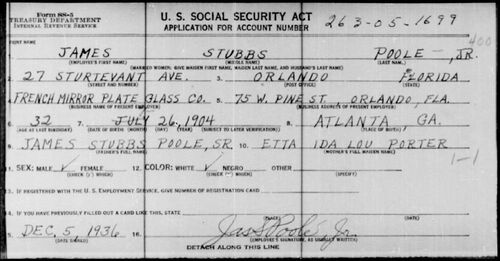 Form SS-5
TREASURY DEPARTMENT
INTERNAL REVENUE SERVICE
U. S. SOCIAL SECURITY ACT
APPLICATION FOR ACCOUNT NUMBER
263-05-1699
400
1. JAMES STUBBS POOLE, JR.
(EMPLOYEE'S FIRST NAME) (MIDDLE NAME) (LAST NAME)
(MARRIED WOMEN: GIVE MAIDEN FIRST NAME, MAIDEN LAST NAME, AND HUSBAND'S LAST NAME)
2. 27 STURTEVANT AVE. 3. ORLANDO FLORIDA
(STREET AND NUMBER) (POST OFFICE) (STATE)
4. FRENCH MIRROR PLATE GLASS CO. 5. 75 W. PINE ST. ORLANDO, FLA.
(BUSINESS NAME OF PRESENT EMPLOYER) (BUSINESS ADDRESS OF PRESENT EMPLOYER)
6. 32 7. JULY 26, 1904 8. ATLANTA, GA.
(AGE AT LAST BIRTHDAY) (DATE OF BIRTH: (MONTH) (DAY) (YEAR) (SUBJECT TO LATER VERIFICATION) (PLACE OF BIRTH)
9. JAMES STUBBS POOLE, SR. 10. ETTA IDA LOU PORTER
(FATHER'S FULL NAME) (MOTHER'S FULL MAIDEN NAME)
1-1
11. SEX: MALE ✓ FEMALE 12. COLOR: WHITE ✓ NEGRO OTHER
(CHECK (✓) WHICH) (CHECK (✓) WHICH)
13. IF REGISTERED WITH THE U. S. EMPLOYMENT SERVICE, GIVE NUMBER OF REGISTRATION CARD
14. IF YOU HAVE PREVIOUSLY FILLED OUT A CARD LIKE THIS, STATE
15. DEC, 5, 1936 16. Jas S Poole Jr.
(DATE SIGNED) (EMPLOYEE'S SIGNATURE, AS USUALLY WRITTEN)
DETACH ALONG THIS LINE